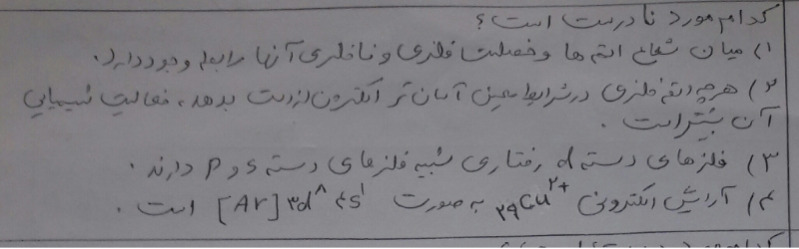 کدام مورد نادرست است؟
۱) میان شعاع اتم ها و خصلت فلزی و نافلزی آنها رابطه وجود دارد.
۲) هرچه اتم فلزی در شرایط معین آسان تر الکترون از دست بدهد، فعالیت شیمیایی
آن بیشتر است.
۳) فلزهای دسته d رفتاری شبیه فلزهای دسته s و p دارند.
۴) آرایش الکترونی ₂₉Cu²⁺ به صورت [Ar] ۳d⁸ ۴s¹ است.